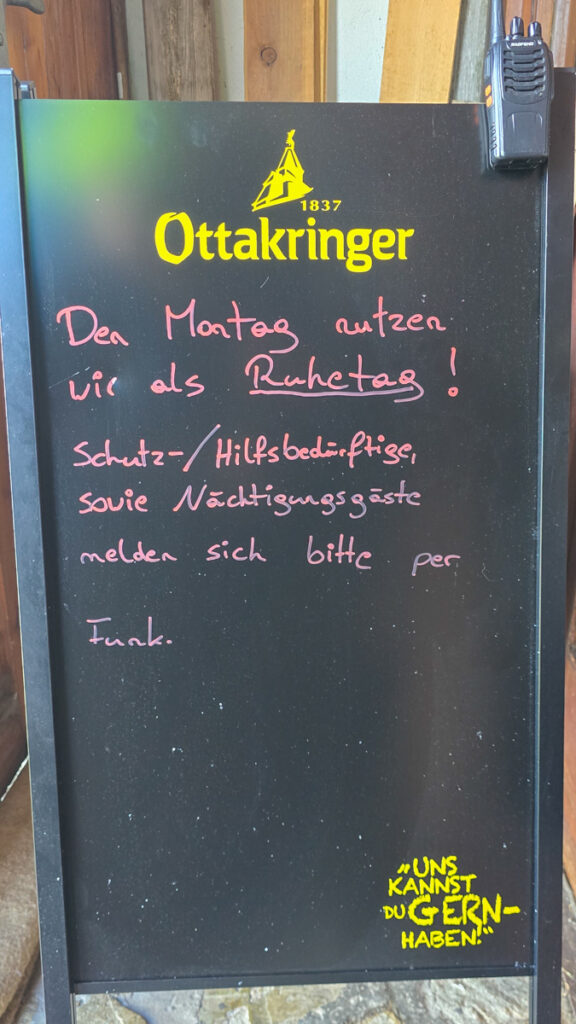 BAOFENG
1837
Ottakringer
Den Montag nutzen
wir als Ruhetag!
Schutz-/Hilfsbedürftige,
sowie Nächtigungsgäste
melden sich bitte per
Funk.
„UNS
KANNST
DU GERN-
HABEN!“